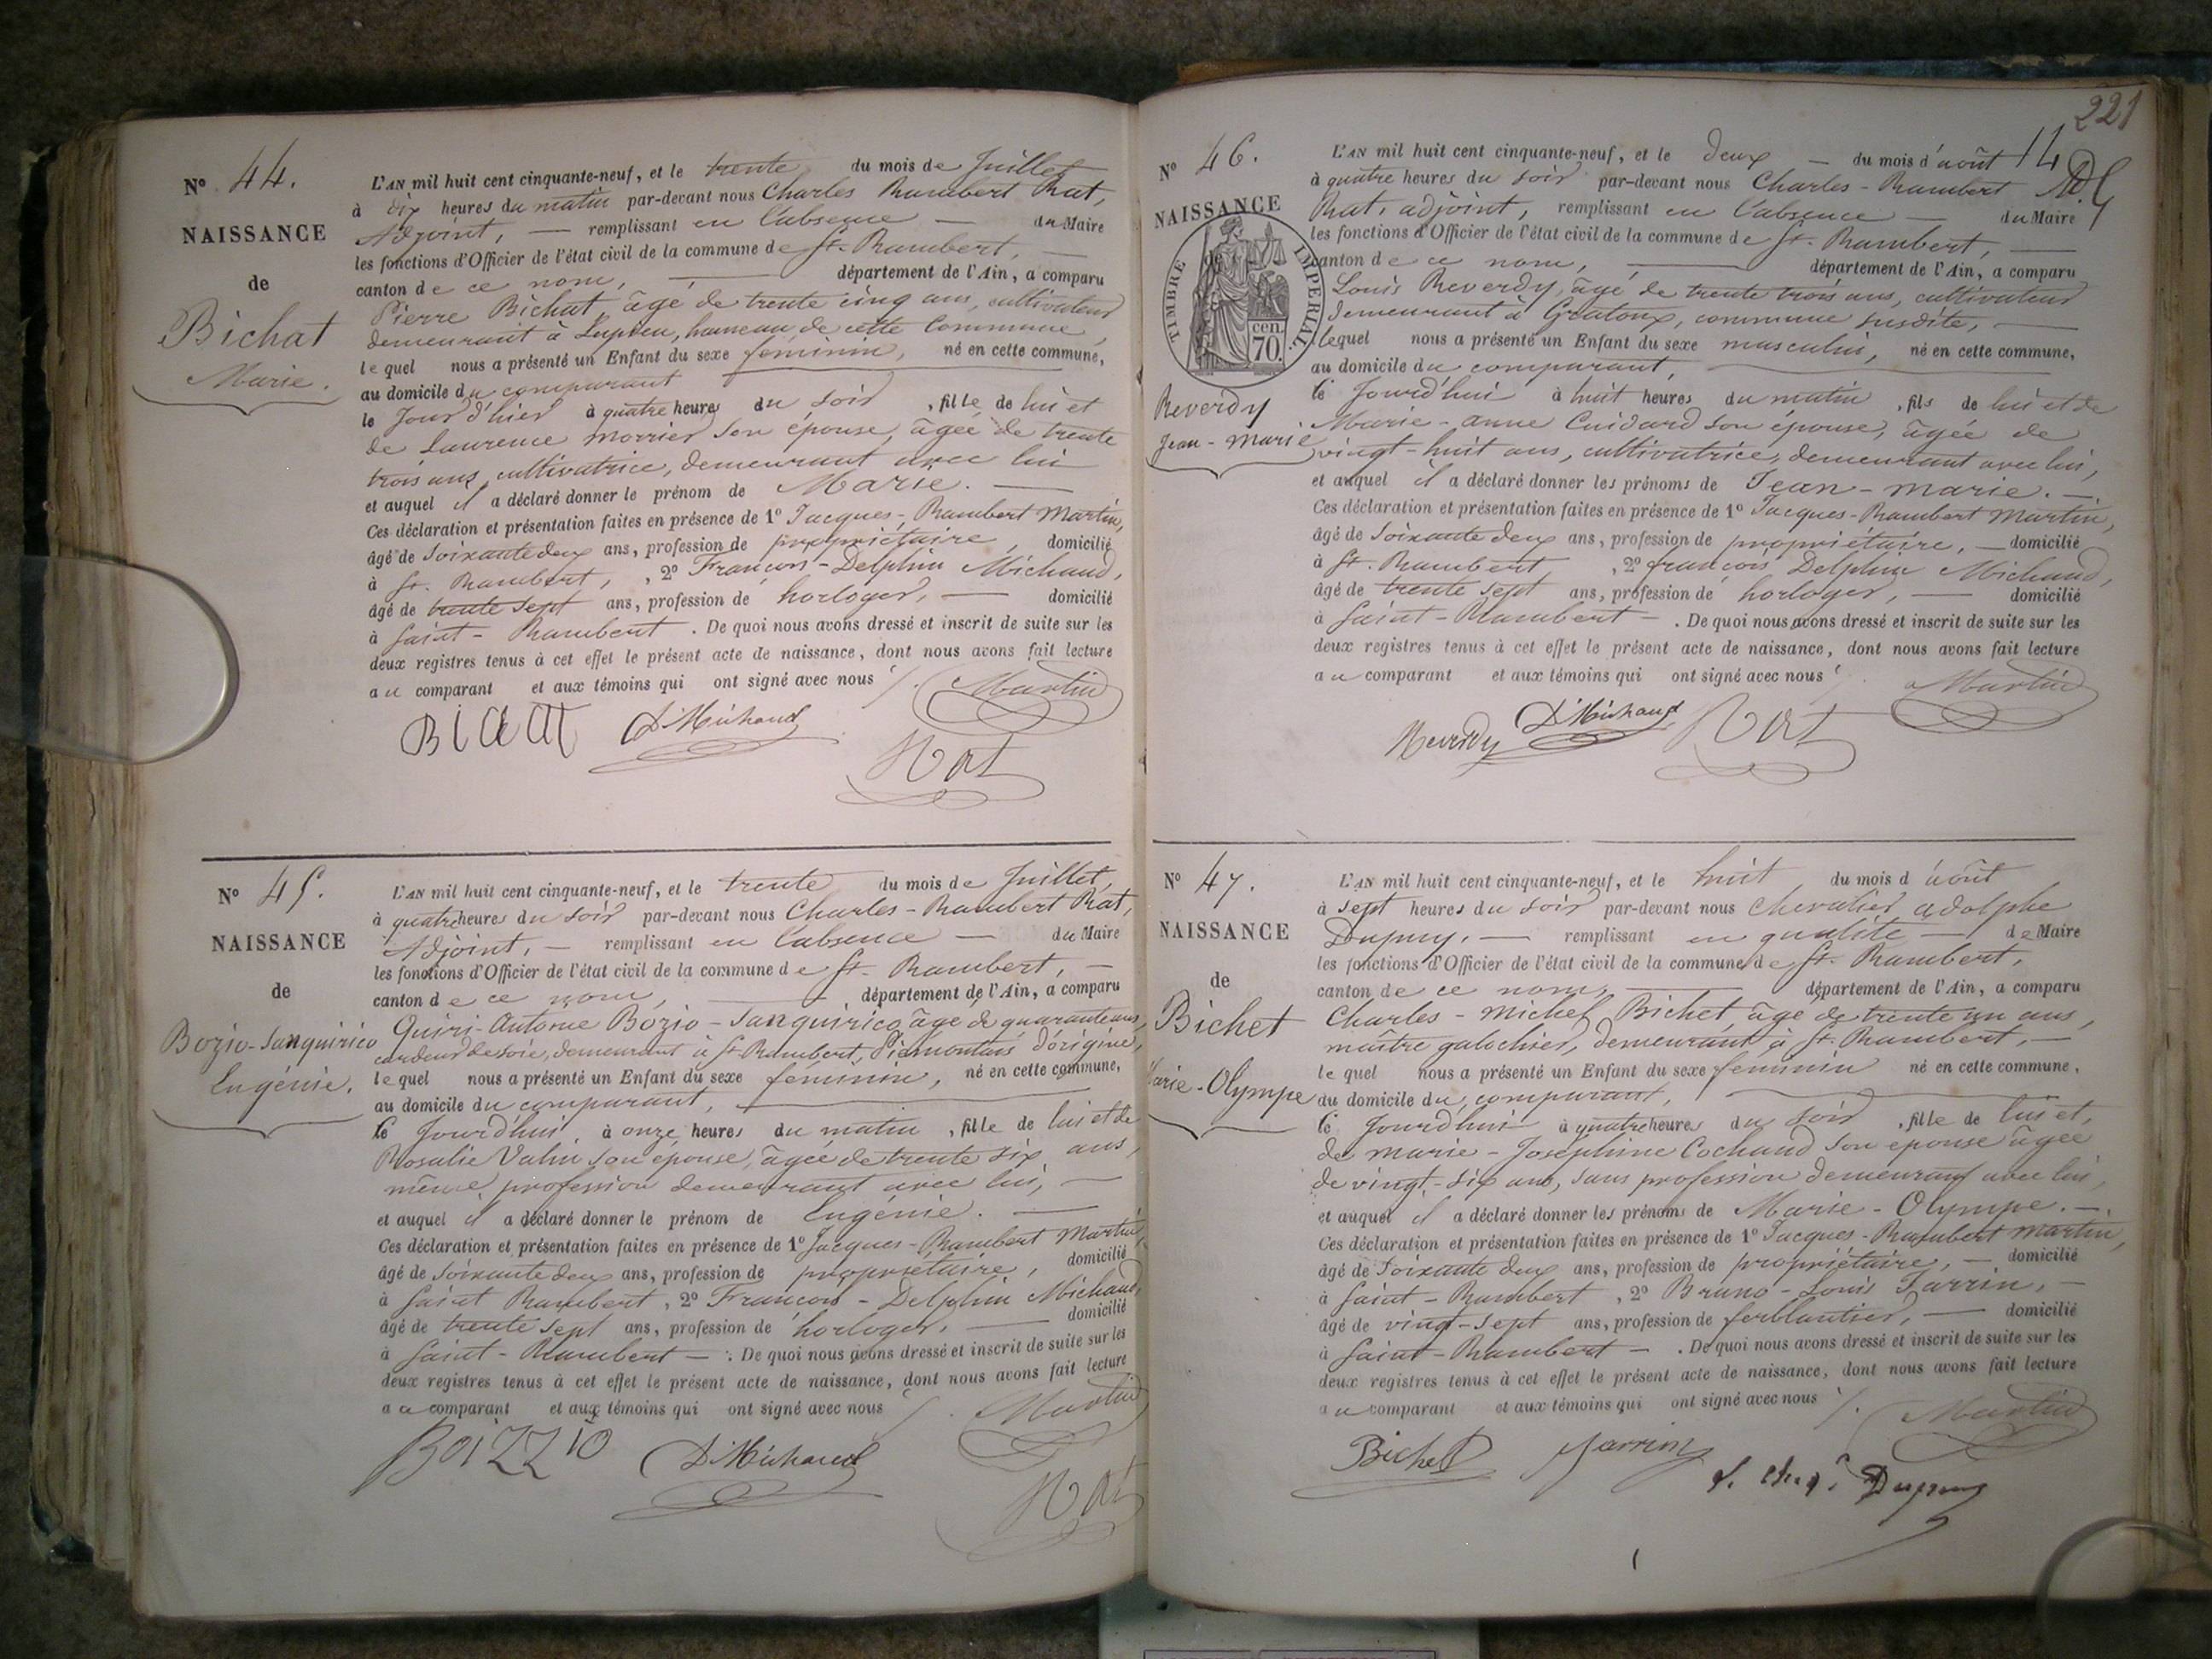 Nº 44.
NAISSANCE
de
Bichat
Marie.
L'AN mil huit cent cinquante-neuf, et le trente du mois de Juillet
à dix heures du matin par-devant nous Charles Rambert Rat,
Adjoint, — remplissant en l'absence — du Maire
les fonctions d'Officier de l'état civil de la commune de St. Rambert,
canton de ce nom, — département de l'Ain, a comparu
Pierre Bichat, âgé de trente cinq ans, cultivateur
demeurant à Lupieu, hameau de cette Commune,
lequel nous a présenté un Enfant du sexe féminin, né en cette commune,
au domicile du comparant
le Jour d'hier à quatre heures du soir, fille de lui et
de Laurence morrier son épouse, âgée de trente
trois ans, cultivatrice, demeurant avec lui
et auquel il a déclaré donner le prénom de Marie. —
Ces déclaration et présentation faites en présence de 1º Jacques-Rambert Martin,
âgé de soixante deux ans, profession de propriétaire, domicilié
à St. Rambert, , 2º François-Delphin Michaud,
âgé de trente sept ans, profession de horloger, — domicilié
à Saint-Rambert. De quoi nous avons dressé et inscrit de suite sur les
deux registres tenus à cet effet le présent acte de naissance, dont nous avons fait lecture
au comparant et aux témoins qui ont signé avec nous /. Martin
D Michaud
Rat
Nº 45.
NAISSANCE
de
Bozio-Sanquirico
Eugénie.
L'AN mil huit cent cinquante-neuf, et le trente du mois de Juillet,
à quatre heures du soir par-devant nous Charles-Rambert Rat,
Adjoint, — remplissant en l'absence — du Maire
les fonctions d'Officier de l'état civil de la commune de St. Rambert, —
canton de ce nom, — département de l'Ain, a comparu
Quiri-Antoine Bozio-Sanquirico, âgé de quarante ans,
cardeur de soie, demeurant à St Rambert, Piémontais d'origine,
lequel nous a présenté un Enfant du sexe féminin, né en cette commune,
au domicile du comparant,
le Jourd'hui, à onze heures du matin, fille de lui et de
Rosalie Valin son épouse, âgée de trente six ans,
même profession demeurant avec lui, —
et auquel il a déclaré donner le prénom de Eugénie. —
Ces déclaration et présentation faites en présence de 1º Jacques-Rambert Martin
âgé de soixante deux ans, profession de propriétaire, domicilié
à Saint Rambert, 2º François-Delphin Michaud,
âgé de trente sept ans, profession de horloger, — domicilié
à Saint-Rambert —. De quoi nous avons dressé et inscrit de suite sur les
deux registres tenus à cet effet le présent acte de naissance, dont nous avons fait lecture
au comparant et aux témoins qui ont signé avec nous /. Martin
BoiZZio D Michaud
Rat
221
Nº 46.
NAISSANCE
de
TIMBRE IMPERIAL.
70. cen
Reverdy
Jean-Marie
L'AN mil huit cent cinquante-neuf, et le deux — du mois d'août 14
à quatre heures du soir par-devant nous Charles-Rambert
Rat, adjoint, remplissant en l'absence — du Maire
les fonctions d'Officier de l'état civil de la commune de St. Rambert, —
canton de ce nom, — département de l'Ain, a comparu
Louis Reverdy, âgé de trente trois ans, cultivateur
demeurant à Gratoux, commune susdite, —
lequel nous a présenté un Enfant du sexe masculin, né en cette commune,
au domicile du comparant,
le Jourd'hui à huit heures du matin, fils de lui et de
Marie-anne Cuidard son épouse, âgée de
vingt-huit ans, cultivatrice, demeurant avec lui,
et auquel il a déclaré donner les prénoms de Jean-marie. —
Ces déclaration et présentation faites en présence de 1º Jacques-Rambert Martin,
âgé de soixante deux ans, profession de propriétaire, — domicilié
à St. Rambert, 2º françois Delphin Michaud,
âgé de trente sept ans, profession de horloger, — domicilié
à Saint-Rambert —. De quoi nous avons dressé et inscrit de suite sur les
deux registres tenus à cet effet le présent acte de naissance, dont nous avons fait lecture
au comparant et aux témoins qui ont signé avec nous Martin
Reverdy D Michaud Rat
Nº 47.
NAISSANCE
de
Bichet
Marie-Olympe
L'AN mil huit cent cinquante-neuf, et le huit, du mois d'août
à sept heures du soir par-devant nous Chevalier adolphe
Dupuy, — remplissant en qualité — de Maire
les fonctions d'Officier de l'état civil de la commune de St. Rambert,
canton de ce nom, — département de l'Ain, a comparu
Charles-Michel Bichet, âgé de trente un ans,
maître galochier, demeurant à St. Rambert, —
lequel nous a présenté un Enfant du sexe feminin né en cette commune,
au domicile du comparant,
le Jourd'hui à quatre heures du soir, fille de lui et,
de marie-Joséphine Cochaud son épouse âgée
de vingt-six ans, sans profession demeurant avec lui,
et auquel il a déclaré donner les prénoms de Marie-Olympe. —
Ces déclaration et présentation faites en présence de 1º Jacques-Rambert Martin,
âgé de soixante deux ans, profession de propriétaire, — domicilié
à Saint-Rambert, 2º Bruno-Louis Jarrin, —
âgé de vingt-sept ans, profession de ferblantier, — domicilié
à Saint-Rambert —. De quoi nous avons dressé et inscrit de suite sur les
deux registres tenus à cet effet le présent acte de naissance, dont nous avons fait lecture
au comparant et aux témoins qui ont signé avec nous /. Martin
Bichet Jarrin
Dupuy